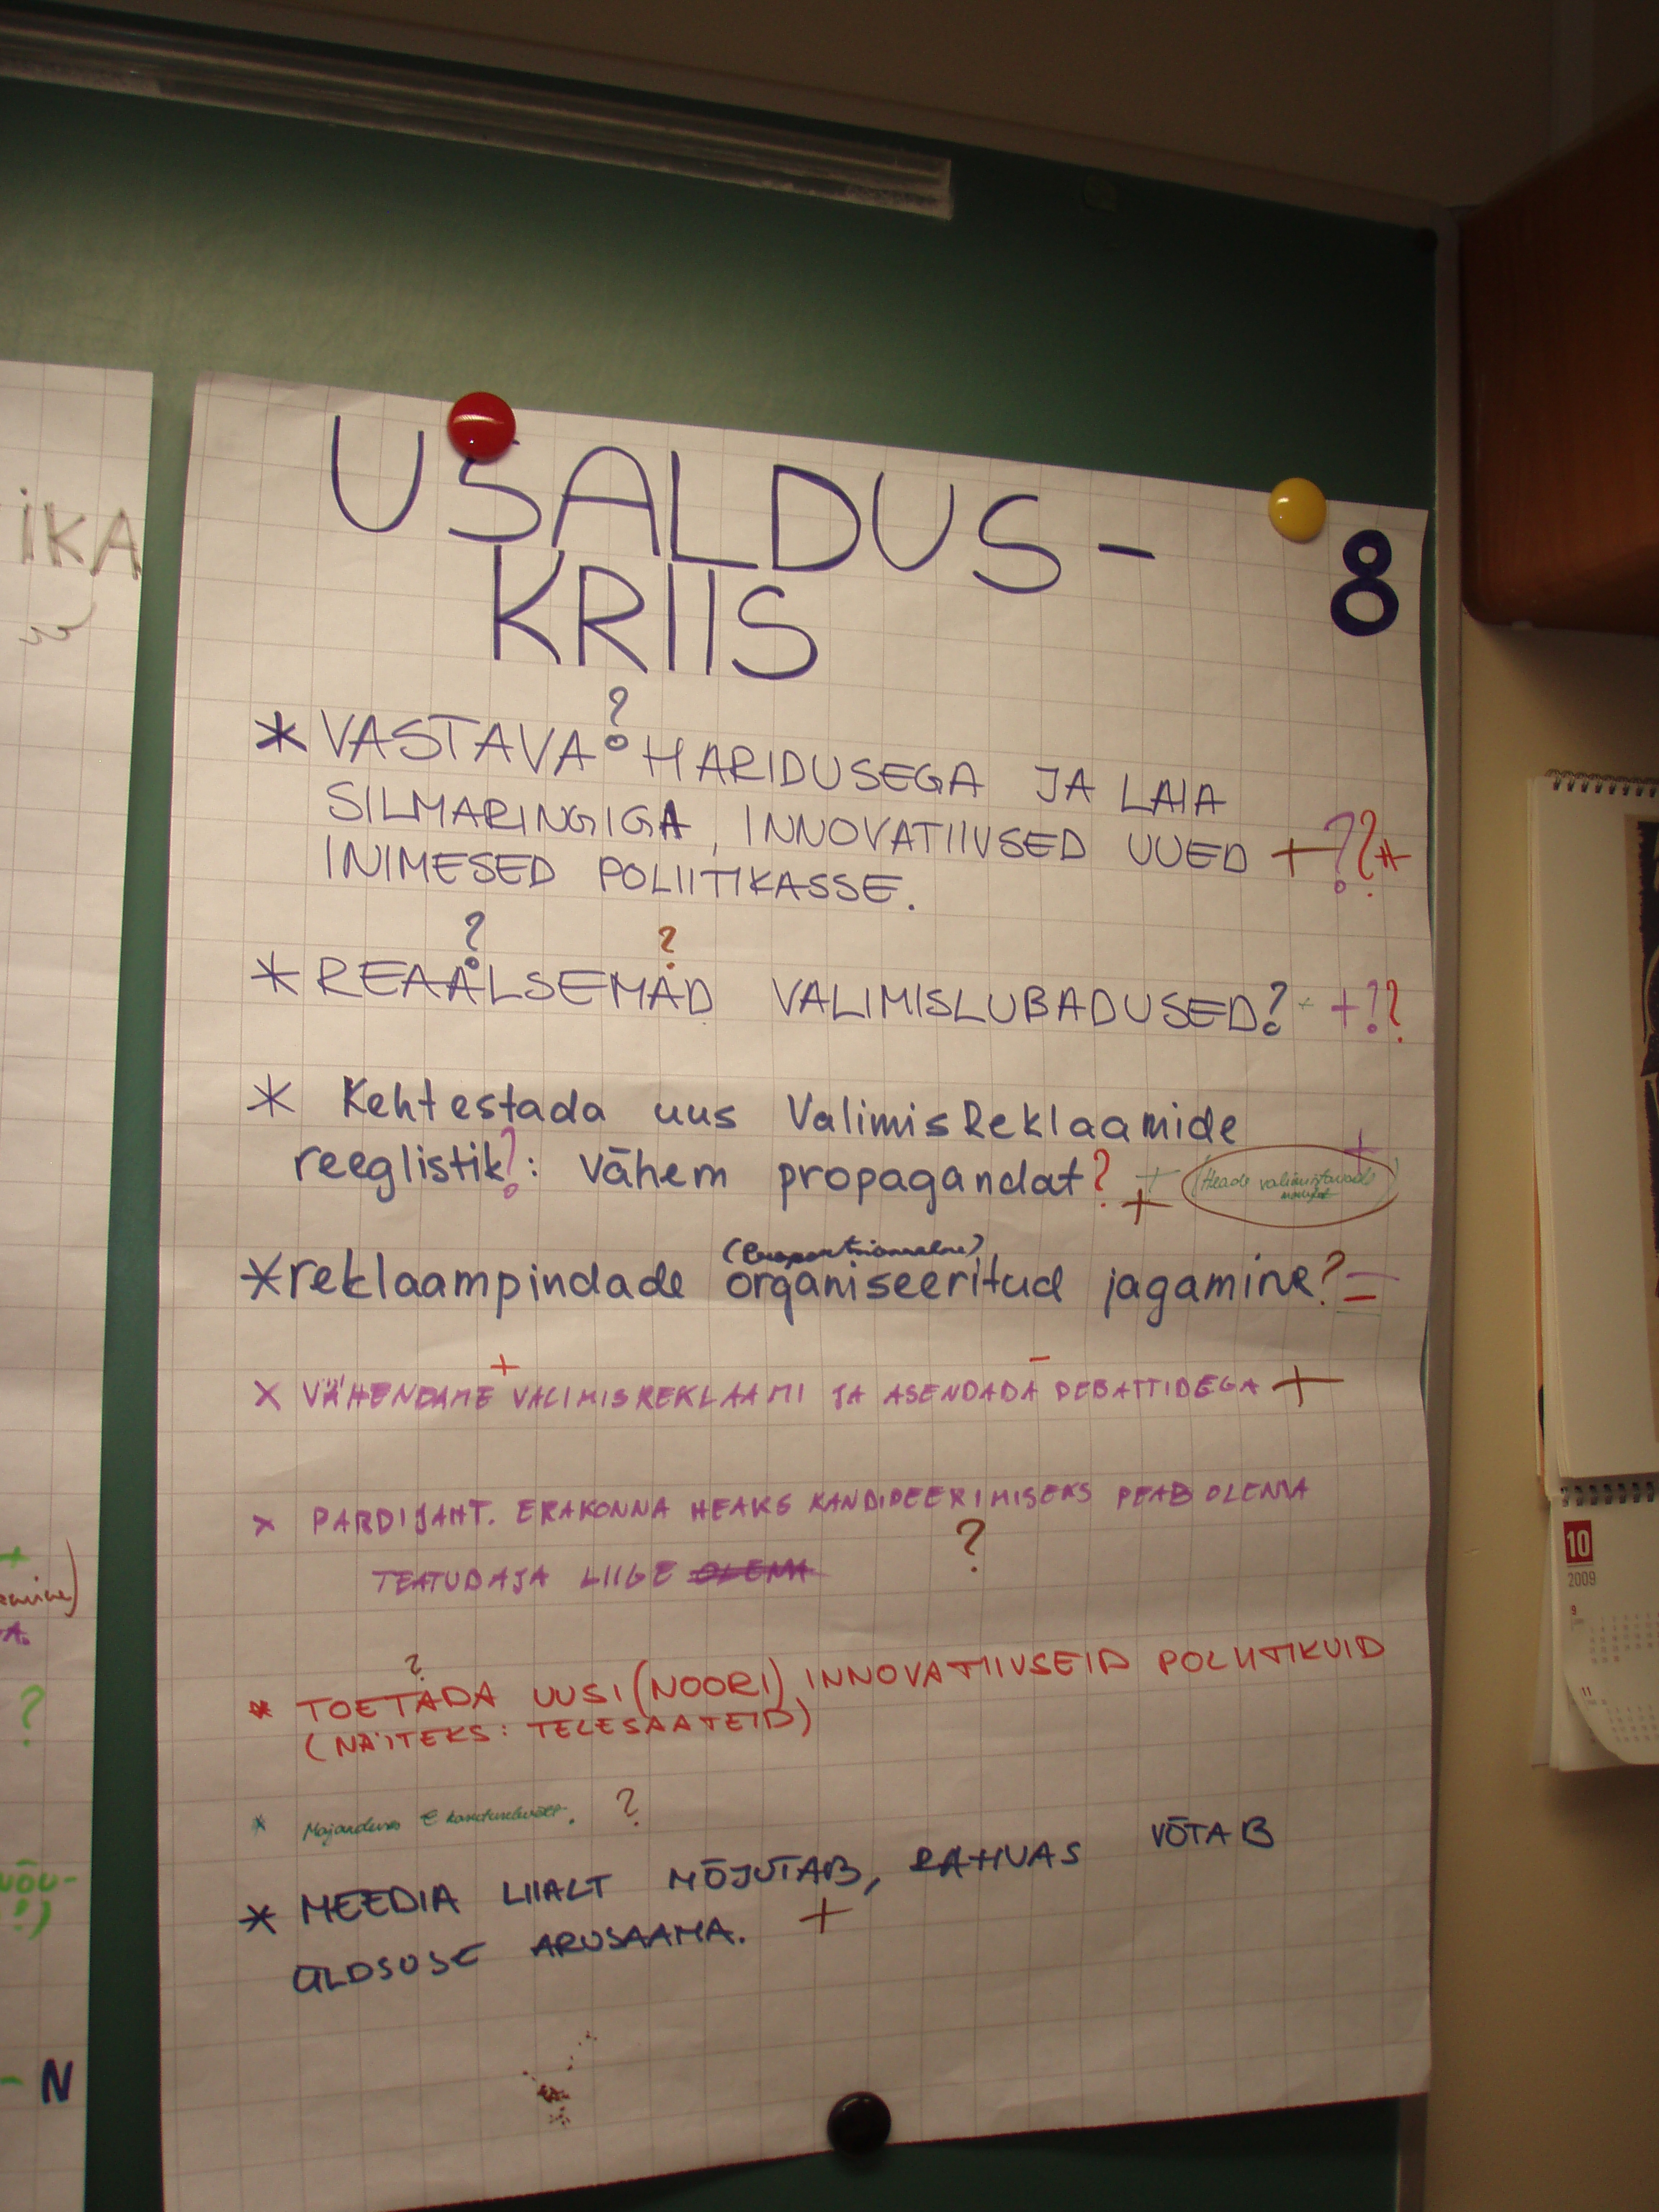 USALDUS-
KRIIS
8
?
* VASTAVA HARIDUSEGA JA LAIA
SILMARINGIGA, INNOVATIIVSED UUED + ? ? +
INIMESED POLIITIKASSE.
? ?
* REAALSEMAD VALIMISLUBADUSED? + + ? ?
* Kehtestada uus ValimisReklaamide
reeglistik?: vähem propagandat? + + +
(Heade valimistavade
(Proportsionaalne)
* reklaampindade organiseeritud jagamine? =
+ -
x VÄHENDAME VALIMISREKLAAMI JA ASENDADA DEBATTIDEGA +
x PARDIJAHT. ERAKONNA HEAKS KANDIDEERIMISEKS PEAB OLEMA
?
TEATUD AJA LIIGE OLEMA
?
* TOETADA UUSI (NOORI) INNOVATIIVSEID POLIITIKUID
(NÄITEKS: TELESAATEID)
* Majanduses € kasutuselevõtt. ?
* MEEDIA LIIALT MÕJUTAB, RAHVAS VÕTAB
ÜLDSUSE ARUSAAMA. +
IKA
+
A.
?
NÕU-
- N
10
2009
9
11